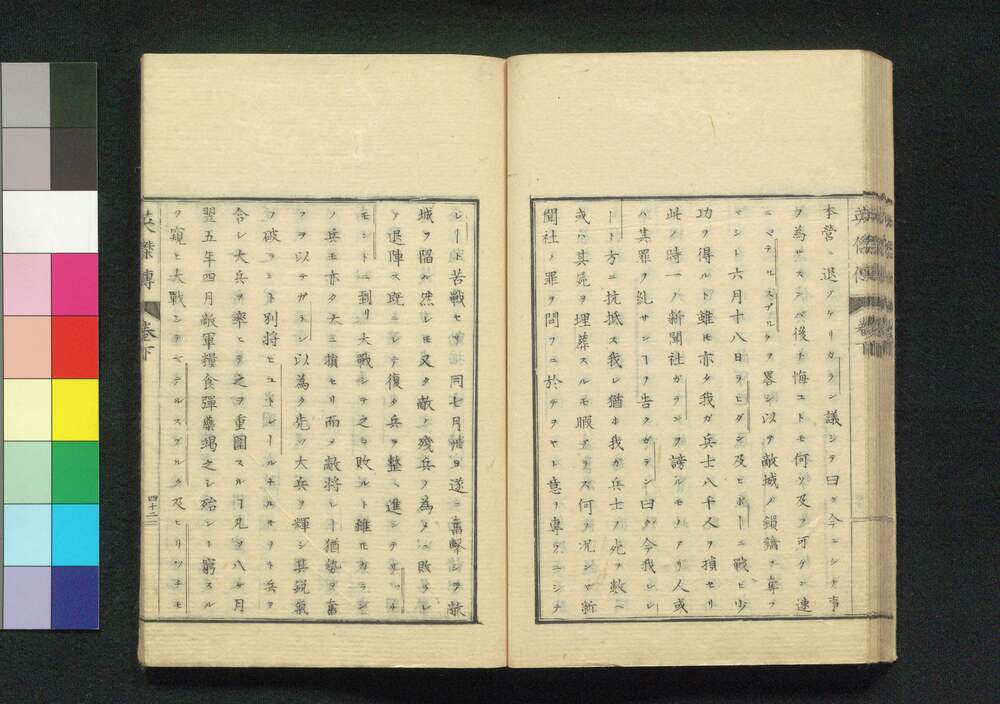 英傑傳 卷下
本營ニ退クケリガランド議シテ曰ク今ニシテ事
ヲ為サスンバ後チ悔ユトモ何ソ及フ可ケン速
ニマテルスブルクヲ畧シ以テ敵城ノ鎖鑰ヲ奪フ
マシト六月十八日ヲヒダン及ヒポーニ戰ヒ少
功ヲ得ルト雖モ亦タ我ガ兵士八千人ヲ損セリ
此ノ時一ノ新聞社ガランヲ謗ルモノアリ人或
ハ其罪ヲ糺サンヿヲ告クガラン曰ク今我レレ
ート方ニ抗抵ス我レ猶ホ我ガ兵士ノ死ヲ數ヘ
或ハ其死ヲ埋葬スルモ暇アラス何ソ況シヤ新
聞社ノ罪ヲ問フニ於テヲヤト意ヲ專ラニシテ
レート苦戰セリ同七月晦日遂ニ奮擊シテ敵
城ヲ陷ル然レモ又タ敵ノ殘兵ノ為メニ敗ラレ
テ退陣ス既ニシテ復タ兵ヲ整ヘ進シテリッチ
モントニ到リ大戰シテ之ヲ敗ルト雖モガラン
ノ兵モ亦タ大ニ損セリ而メ敵將レー猶勢ヲ奮
フヲ以テガラン以為ク先ツ大兵ヲ輝シ其銳氣
ヲ破ラント別將ヒユ
合レ大兵ヲ率ヒテ之ヲ重圍スルヿ凡ヲ八ケ月
翌五年四月敵軍糧食彈藥竭之シ殆ント窮スル
ヲ窺ヒ大戰シテペテルスブルク及ヒリツチモ
英傑傳 卷下 四十二